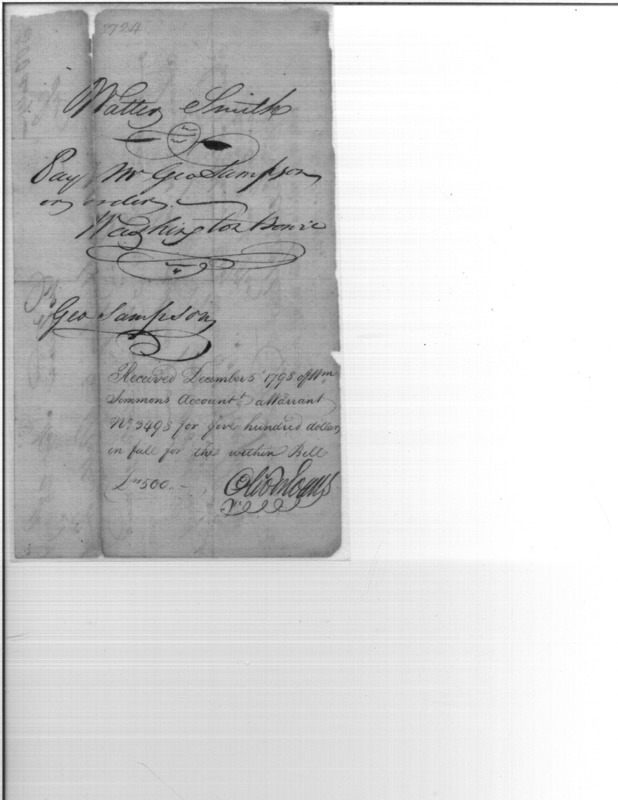 7724
Walter Smith
Pay Mr Geo Sampson
or order.
Washington Bowie
Geo Sampson
Received December 5 1798 of Wm
Simmons Accountt a Warrant
No. 3498 for five hundred dollars
in full for the within Bill
500.